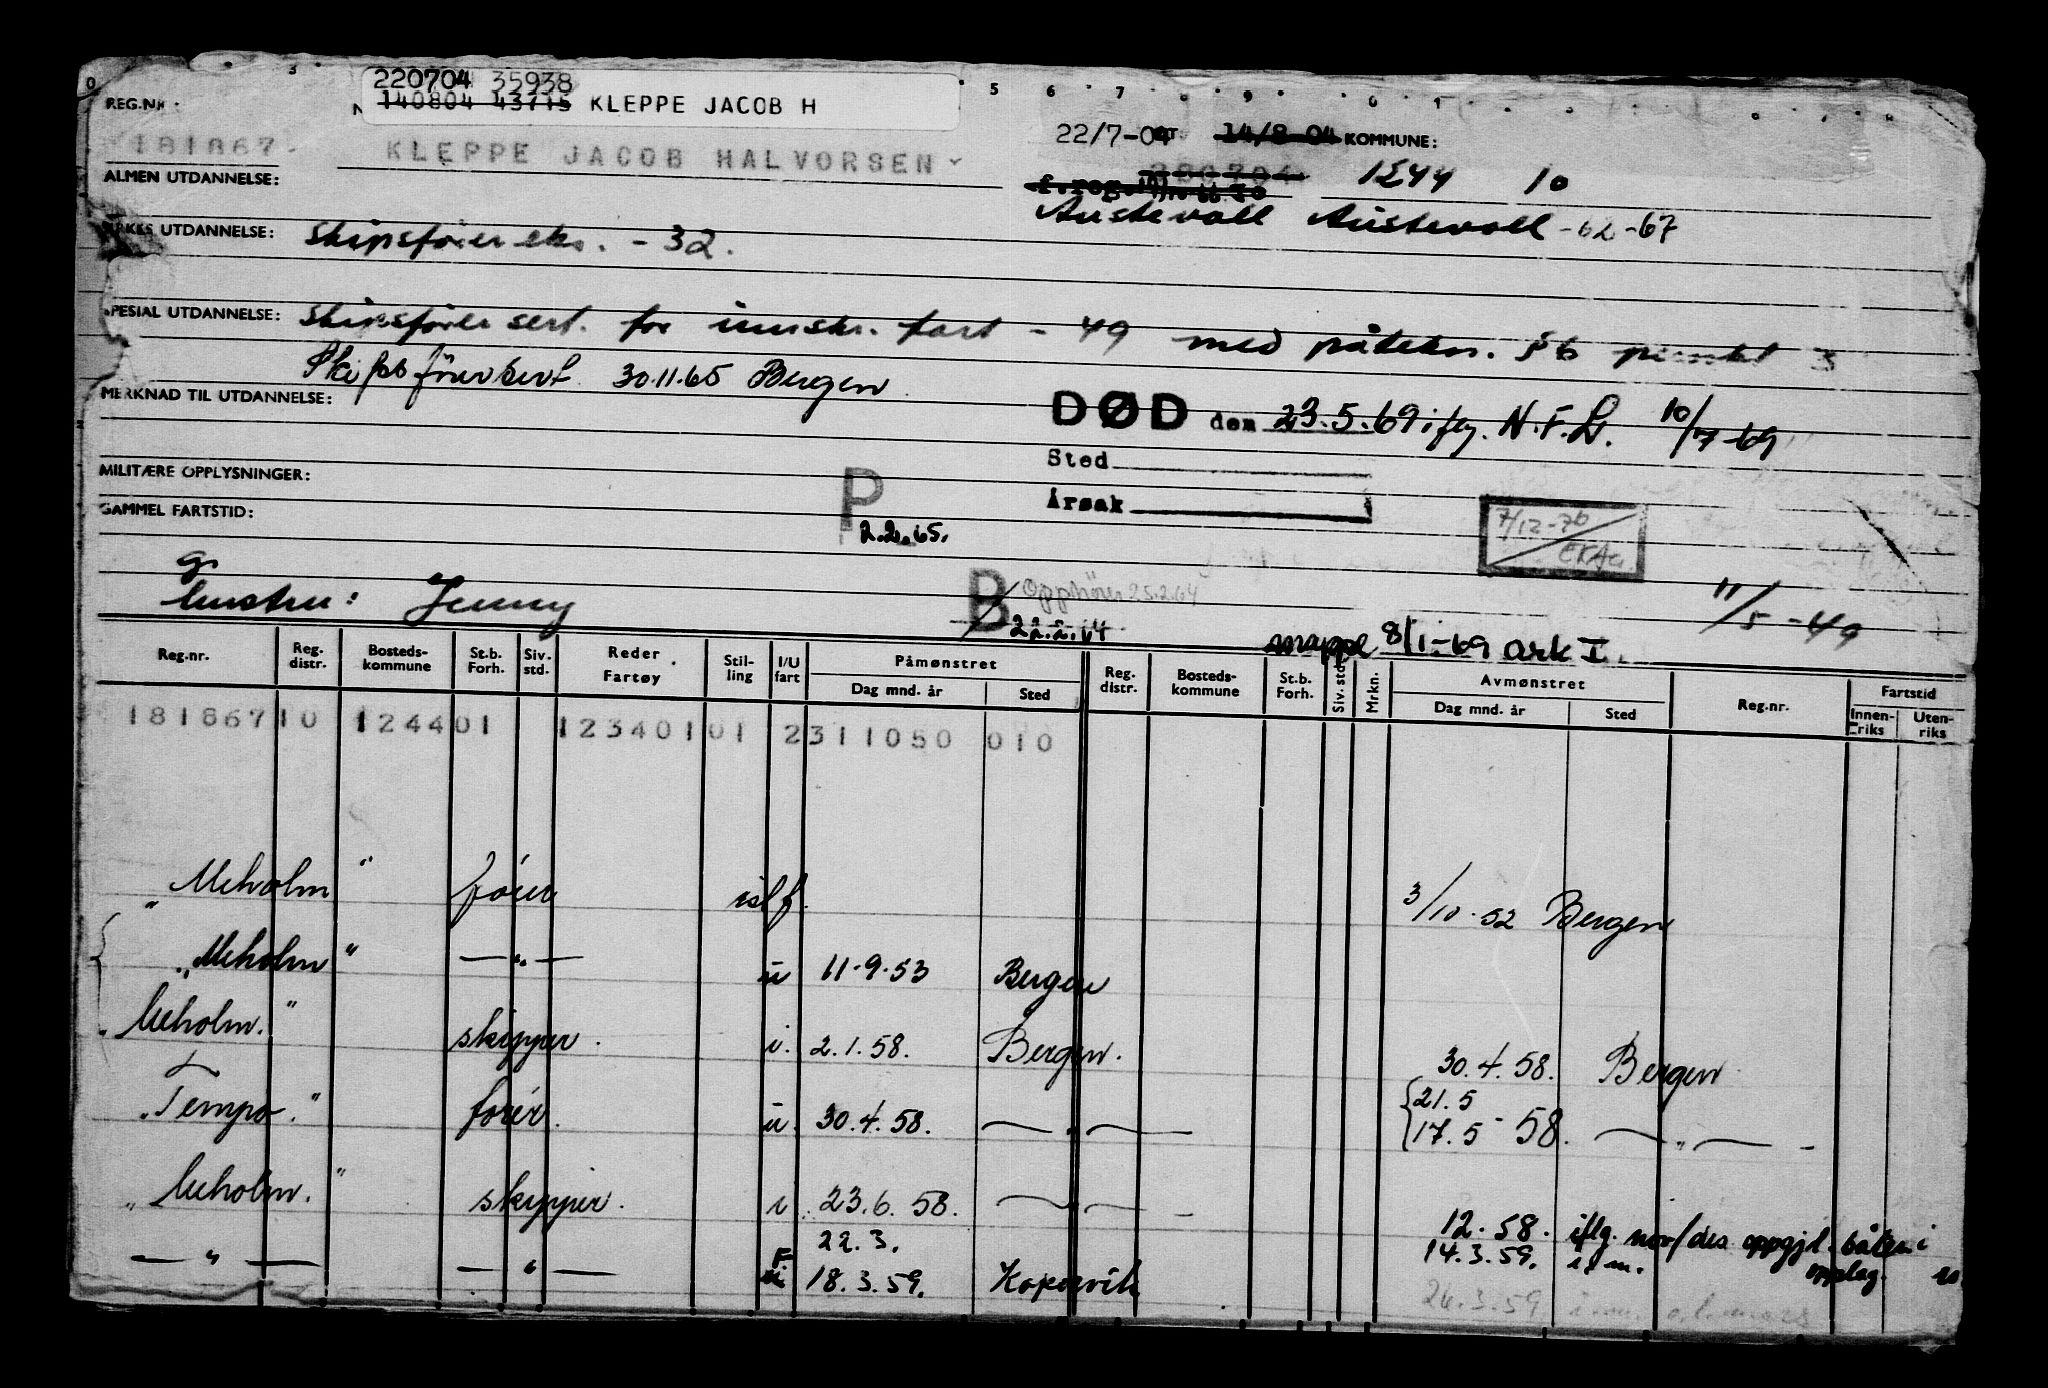 220704 35938
REG.NR. 140804 43715 KLEPPE JACOB H
22/7-04 14/8-04 KOMMUNE:
181867 KLEPPE JACOB HALVORSEN
1244 10
ALMEN UTDANNELSE:
Austevoll Austevoll -62-67
YRKES UTDANNELSE: Skipsfører eks. -32.
SPESIAL UTDANNELSE: Skipsfører sert. for innskr. fart - 49 med påtekn. § 6 punkt 3
Skipsførersert. 30.11.65 Bergen
MERKNAD TIL UTDANNELSE:
DØD den 23.5.69 iflg. N.F.L. 10/7-69
Sted
MILITÆRE OPPLYSNINGER:
Årsak
P
GAMMEL FARTSTID:
2.2.65.
7/12-76
g.
B Opphører 25.2.64
Hustru: Jenny
22.2.64
11/5-49
mappe 8/1-69 ark I.
Reg.nr. Reg. distr. Bosteds-kommune St.b. Forh. Siv. std. Reder Fartøy Stil-ling I/U fart Påmønstret Dag mnd. år Sted Reg. distr. Bosteds-kommune St.b. Forh. Siv. std. Mrkn. Avmønstret Dag mnd. år Sted Reg.nr. Fartstid Innen-riks Uten-riks
181867 10 1244 01 12340101 2311050 010
"Meholm" fører isl f. 3/10-52 Bergen
"Meholm" — " — u 11.9.53 Bergen
"Meholm." skipper. i. 2.1.58. Bergen. 30.4.58. Bergen
"Tempo." fører. u. 30.4.58. — " — 21.5 17.5-58. — " —
"Meholm." skipper. i 23.6.58. — " — 12.58. iflg. oppgj. båten i opplag.
— " — — " — F 22.3. 18.3.59. Kopervik 14.3.59. i m.
24.3.59